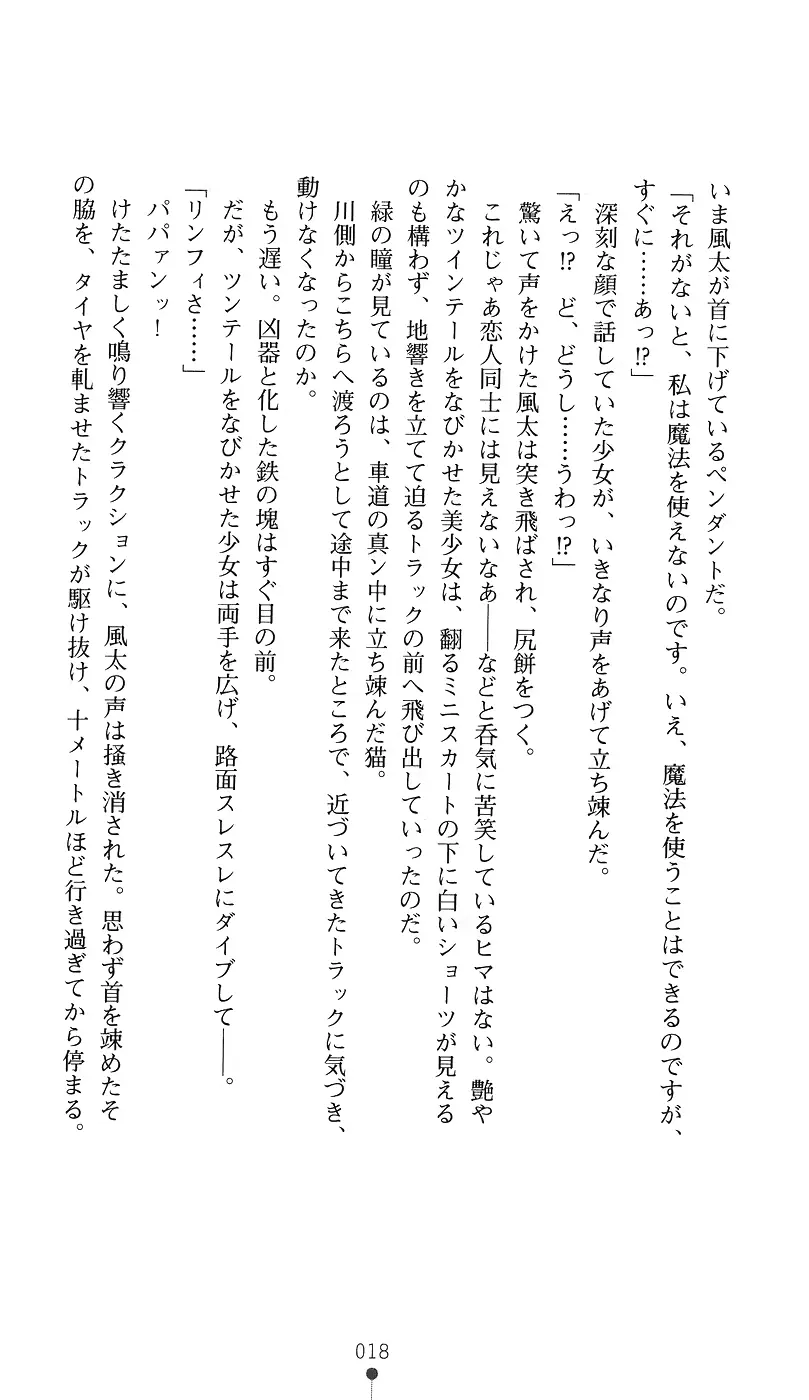 いま風太が首に下げているペンダントだ。
「それがないと、私は魔法を使えないのです。いえ、魔法を使うことはできるのですが、
すぐに……あっ!?」
深刻な顔で話していた少女が、いきなり声をあげて立ち竦んだ。
「えっ!? ど、どうし……うわっ!?」
驚いて声をかけた風太は突き飛ばされ、尻餅をつく。
これじゃあ恋人同士には見えないなあ――などと呑気に苦笑しているヒマはない。艶や
かなツインテールをなびかせた美少女は、翻るミニスカートの下に白いショーツが見える
のも構わず、地響きを立てて迫るトラックの前へ飛び出していったのだ。
緑の瞳が見ているのは、車道の真ン中に立ち竦んだ猫。
川側からこちらへ渡ろうとして途中まで来たところで、近づいてきたトラックに気づき、
動けなくなったのか。
もう遅い。凶器と化した鉄の塊はすぐ目の前。
だが、ツンテールをなびかせた少女は両手を広げ、路面スレスレにダイブして――。
「リンフィさ……」
パパァンッ！
けたたましく鳴り響くクラクションに、風太の声は掻き消された。思わず首を竦めたそ
の脇を、タイヤを軋ませたトラックが駆け抜け、十メートルほど行き過ぎてから停まる。
018